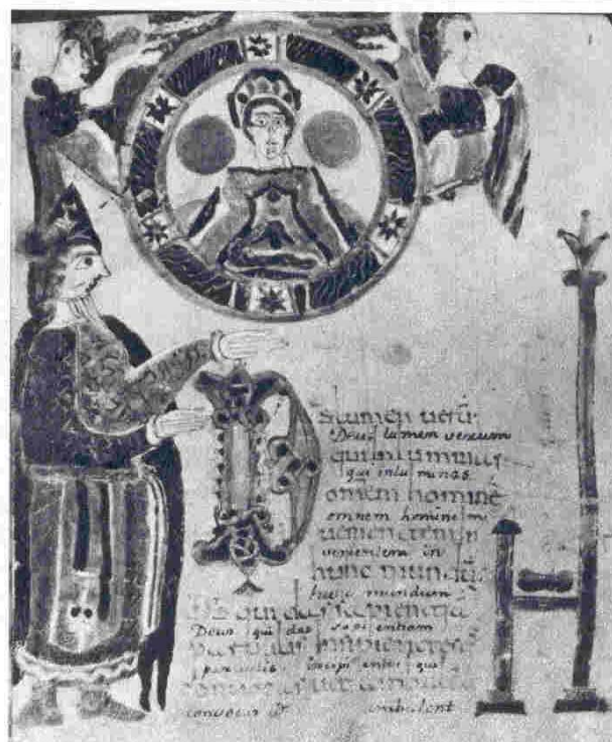 Ds lumen uerū
Deus lumen verum
qui inluminas
qui inlu minas
omnem hominē
omnem hominem
uenientem in
venientem in
hunc mundū
hunc mundum
Ds qui das sapientia
Deus qui das sapientiam
parvulis
conuocas ut